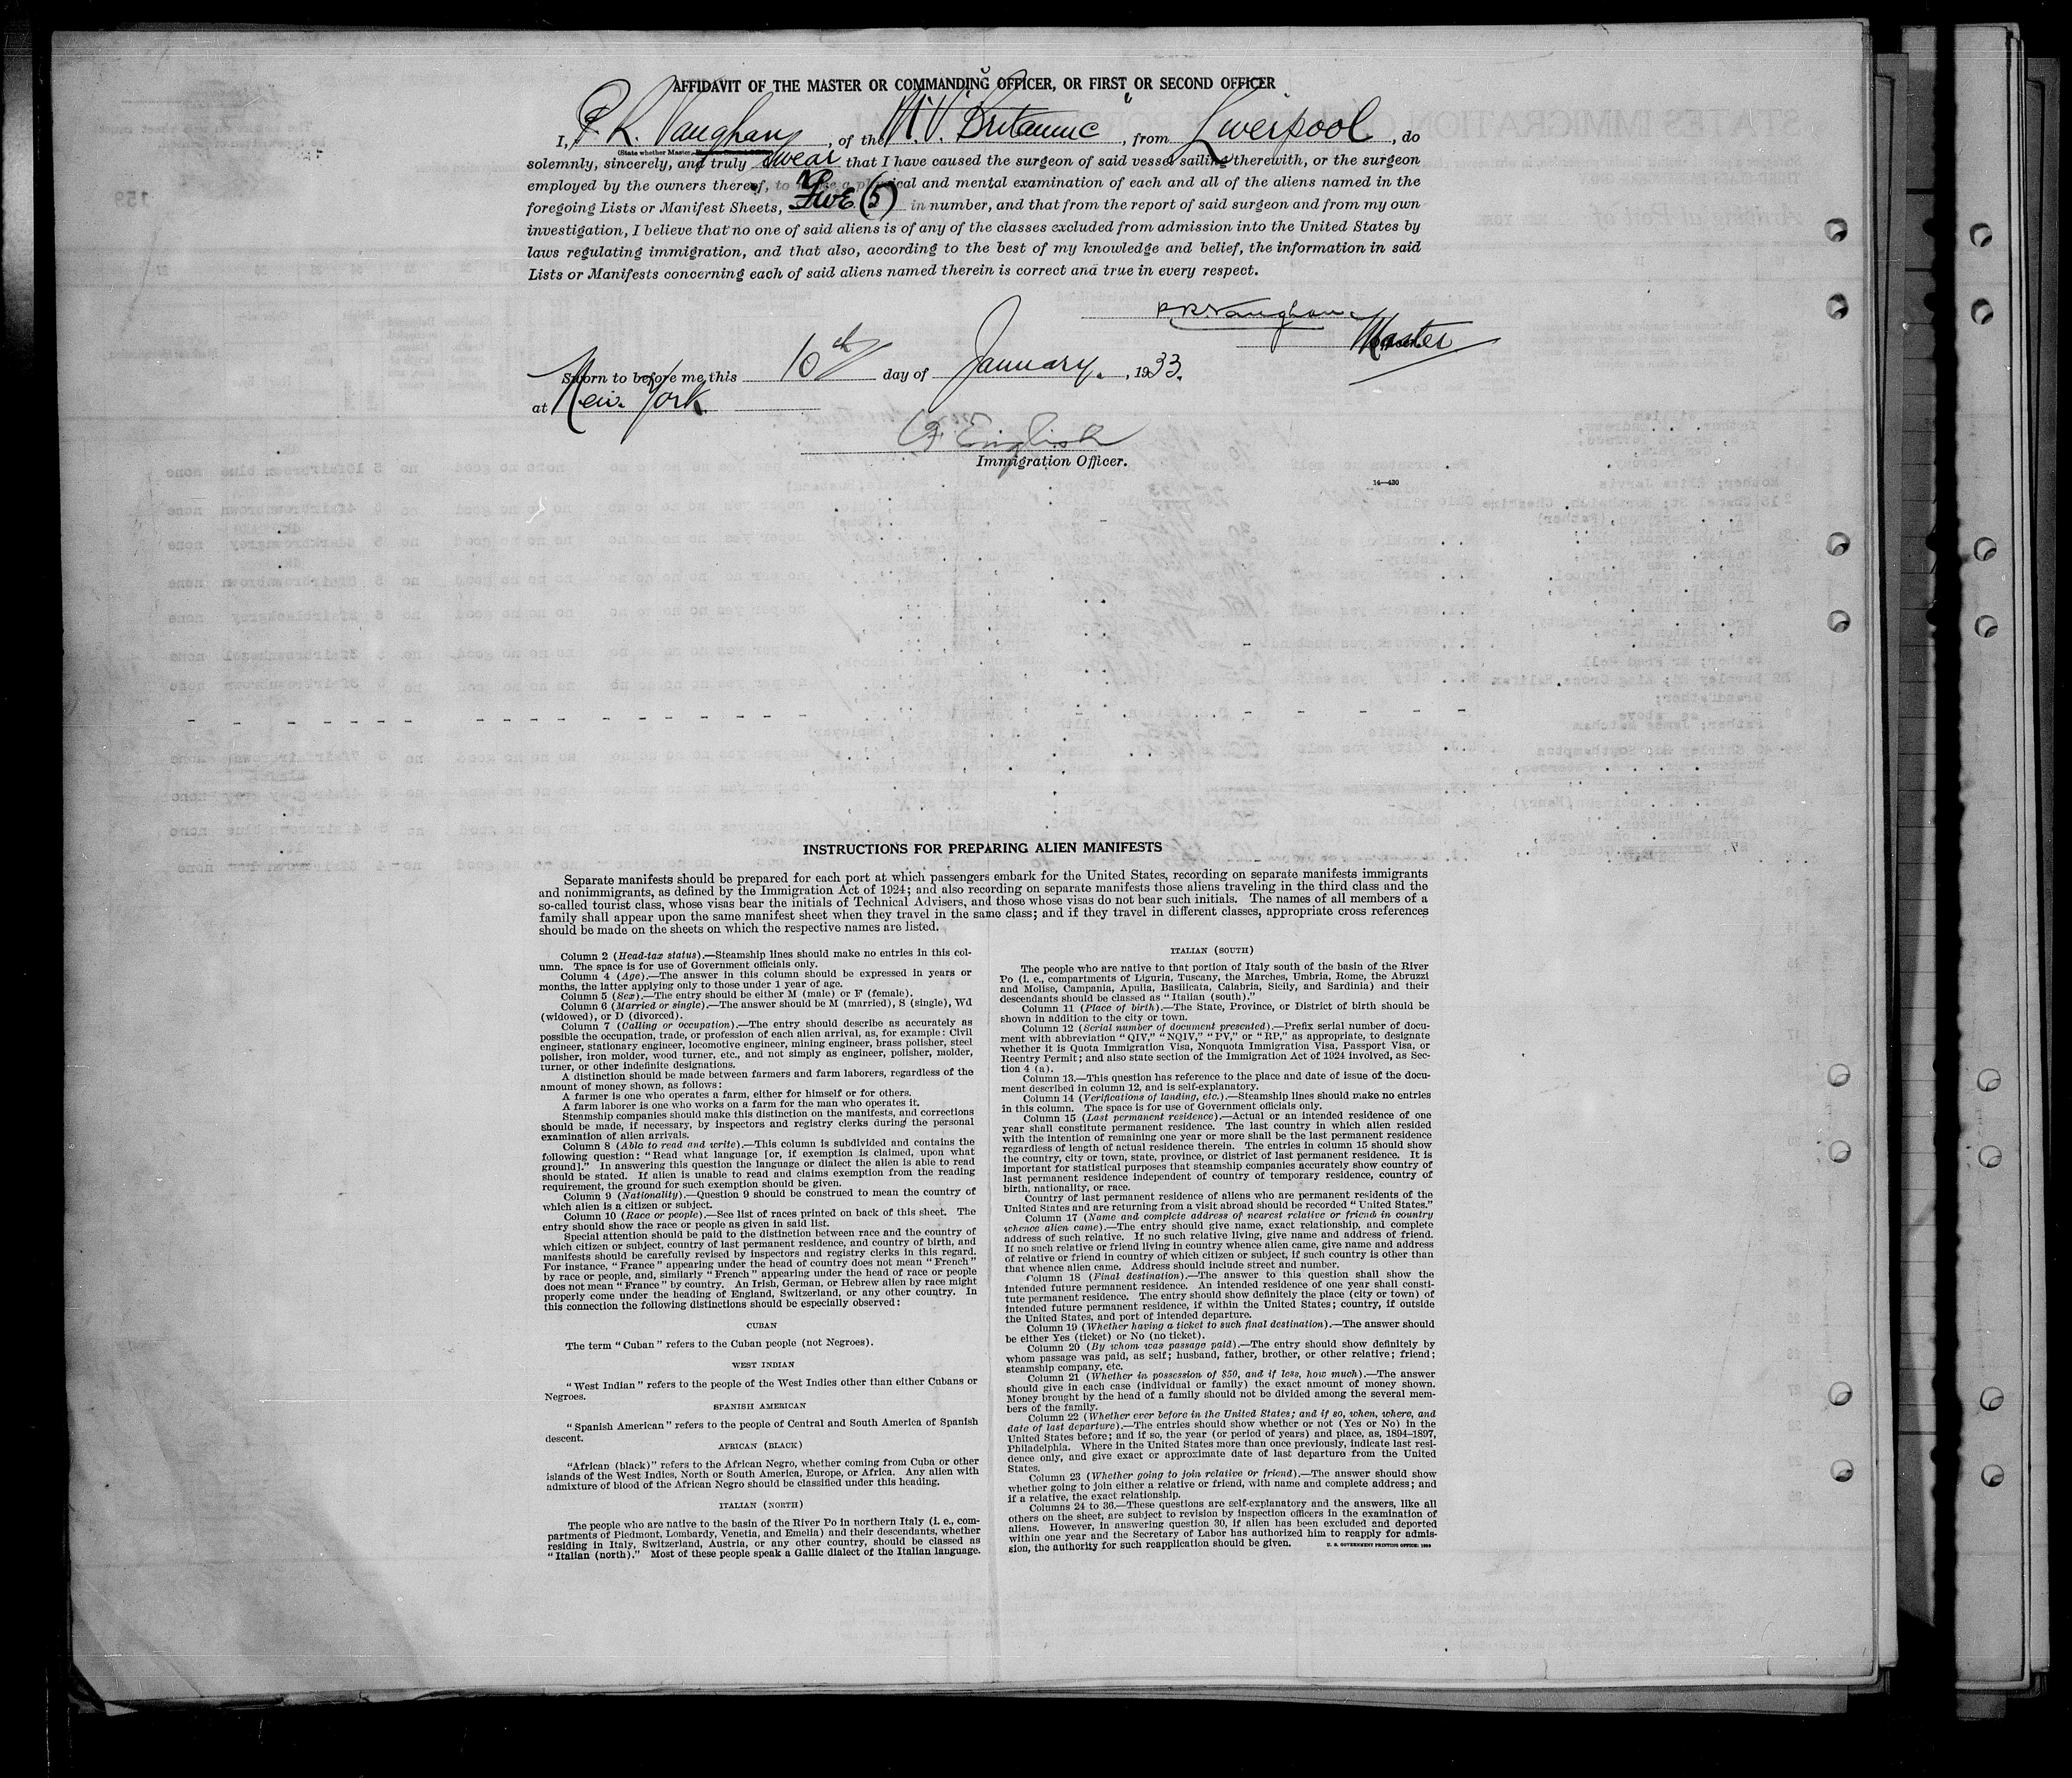 AFFIDAVIT OF THE MASTER OR COMMANDING OFFICER, OR FIRST OR SECOND OFFICER
I, P. R. Vaughan, of the M.V. Britannic, from Liverpool, do
(State whether Master,
solemnly, sincerely, and truly swear that I have caused the surgeon of said vessel sailing therewith, or the surgeon
employed by the owners thereof, to make a physical and mental examination of each and all of the aliens named in the
foregoing Lists or Manifest Sheets, Five (5) in number, and that from the report of said surgeon and from my own
investigation, I believe that no one of said aliens is of any of the classes excluded from admission into the United States by
laws regulating immigration, and that also, according to the best of my knowledge and belief, the information in said
Lists or Manifests concerning each of said aliens named therein is correct and true in every respect.
P R Vaughan
Master
Sworn to before me this 10th day of January, 1933.
at New York
English
Immigration Officer.
14—430
INSTRUCTIONS FOR PREPARING ALIEN MANIFESTS
Separate manifests should be prepared for each port at which passengers embark for the United States, recording on separate manifests immigrants
and nonimmigrants, as defined by the Immigration Act of 1924; and also recording on separate manifests those aliens traveling in the third class and the
so-called tourist class, whose visas bear the initials of Technical Advisers, and those whose visas do not bear such initials. The names of all members of a
family shall appear upon the same manifest sheet when they travel in the same class; and if they travel in different classes, appropriate cross references
should be made on the sheets on which the respective names are listed.
Column 2 (Head-tax status).—Steamship lines should make no entries in this col-
umn. The space is for use of Government officials only.
Column 4 (Age).—The answer in this column should be expressed in years or
months, the latter applying only to those under 1 year of age.
Column 5 (Sex).—The entry should be either M (male) or F (female).
Column 6 (Married or single).—The answer should be M (married), S (single), Wd
(widowed), or D (divorced).
Column 7 (Calling or occupation).—The entry should describe as accurately as
possible the occupation, trade, or profession of each alien arrival, as, for example: Civil
engineer, stationary engineer, locomotive engineer, mining engineer, brass polisher, steel
polisher, iron molder, wood turner, etc., and not simply as engineer, polisher, molder,
turner, or other indefinite designations.
A distinction should be made between farmers and farm laborers, regardless of the
amount of money shown, as follows:
A farmer is one who operates a farm, either for himself or for others.
A farm laborer is one who works on a farm for the man who operates it.
Steamship companies should make this distinction on the manifests, and corrections
should be made, if necessary, by inspectors and registry clerks during the personal
examination of alien arrivals.
Column 8 (Able to read and write).—This column is subdivided and contains the
following question: "Read what language [or, if exemption is claimed, upon what
ground]." In answering this question the language or dialect the alien is able to read
should be stated. If alien is unable to read and claims exemption from the reading
requirement, the ground for such exemption should be given.
Column 9 (Nationality).—Question 9 should be construed to mean the country of
which alien is a citizen or subject.
Column 10 (Race or people).—See list of races printed on back of this sheet. The
entry should show the race or people as given in said list.
Special attention should be paid to the distinction between race and the country of
which citizen or subject, country of last permanent residence, and country of birth, and
manifests should be carefully revised by inspectors and registry clerks in this regard.
For instance, "France" appearing under the head of country does not mean "French"
by race or people, and, similarly "French" appearing under the head of race or people
does not mean "France" by country. An Irish, German, or Hebrew alien by race might
properly come under the heading of England, Switzerland, or any other country. In
this connection the following distinctions should be especially observed:
CUBAN
The term "Cuban" refers to the Cuban people (not Negroes).
WEST INDIAN
"West Indian" refers to the people of the West Indies other than either Cubans or
Negroes.
SPANISH AMERICAN
"Spanish American" refers to the people of Central and South America of Spanish
descent.
AFRICAN (BLACK)
"African (black)" refers to the African Negro, whether coming from Cuba or other
islands of the West Indies, North or South America, Europe, or Africa. Any alien with
admixture of blood of the African Negro should be classified under this heading.
ITALIAN (NORTH)
The people who are native to the basin of the River Po in northern Italy (i. e., com-
partments of Piedmont, Lombardy, Venetia, and Emelia) and their descendants, whether
residing in Italy, Switzerland, Austria, or any other country, should be classed as
"Italian (north)." Most of these people speak a Gallic dialect of the Italian language.
ITALIAN (SOUTH)
The people who are native to that portion of Italy south of the basin of the River
Po (i. e., compartments of Liguria, Tuscany, the Marches, Umbria, Rome, the Abruzzi
and Molise, Campania, Apulia, Basilicata, Calabria, Sicily, and Sardinia) and their
descendants should be classed as "Italian (south)."
Column 11 (Place of birth).—The State, Province, or District of birth should be
shown in addition to the city or town.
Column 12 (Serial number of document presented).—Prefix serial number of docu-
ment with abbreviation "QIV," "NQIV," "PV," or "RP," as appropriate, to designate
whether it is Quota Immigration Visa, Nonquota Immigration Visa, Passport Visa, or
Reentry Permit; and also state section of the Immigration Act of 1924 involved, as Sec-
tion 4 (a).
Column 13.—This question has reference to the place and date of issue of the docu-
ment described in column 12, and is self-explanatory.
Column 14 (Verifications of landing, etc.).—Steamship lines should make no entries
in this column. The space is for use of Government officials only.
Column 15 (Last permanent residence).—Actual or an intended residence of one
year shall constitute permanent residence. The last country in which alien resided
with the intention of remaining one year or more shall be the last permanent residence
regardless of length of actual residence therein. The entries in column 15 should show
the country, city or town, state, province, or district of last permanent residence. It is
important for statistical purposes that steamship companies accurately show country of
last permanent residence independent of country of temporary residence, country of
birth, nationality, or race.
Country of last permanent residence of aliens who are permanent residents of the
United States and are returning from a visit abroad should be recorded "United States."
Column 17 (Name and complete address of nearest relative or friend in country
whence alien came).—The entry should give name, exact relationship, and complete
address of such relative. If no such relative living, give name and address of friend.
If no such relative or friend living in country whence alien came, give name and address
of relative or friend in country of which citizen or subject, if such country is other than
that whence alien came. Address should include street and number.
Column 18 (Final destination).—The answer to this question shall show the
intended future permanent residence. An intended residence of one year shall consti-
tute permanent residence. The entry should show definitely the place (city or town) of
intended future permanent residence, if within the United States; country, if outside
the United States, and port of intended departure.
Column 19 (Whether having a ticket to such final destination).—The answer should
be either Yes (ticket) or No (no ticket).
Column 20 (By whom was passage paid).—The entry should show definitely by
whom passage was paid, as self; husband, father, brother, or other relative; friend;
steamship company, etc.
Column 21 (Whether in possession of $50, and if less, how much).—The answer
should give in each case (individual or family) the exact amount of money shown.
Money brought by the head of a family should not be divided among the several mem-
bers of the family.
Column 22 (Whether ever before in the United States; and if so, when, where, and
date of last departure).—The entries should show whether or not (Yes or No) in the
United States before; and if so, the year (or period of years) and place, as, 1894–1897,
Philadelphia. Where in the United States more than once previously, indicate last resi-
dence only, and give exact or approximate date of last departure from the United
States.
Column 23 (Whether going to join relative or friend).—The answer should show
whether going to join either a relative or friend, with name and complete address; and
if a relative, the exact relationship.
Columns 24 to 36.—These questions are self-explanatory and the answers, like all
others on the sheet, are subject to revision by inspection officers in the examination of
aliens. However, in answering question 30, if alien has been excluded and deported
within one year and the Secretary of Labor has authorized him to reapply for admis-
sion, the authority for such reapplication should be given.
U. S. GOVERNMENT PRINTING OFFICE: